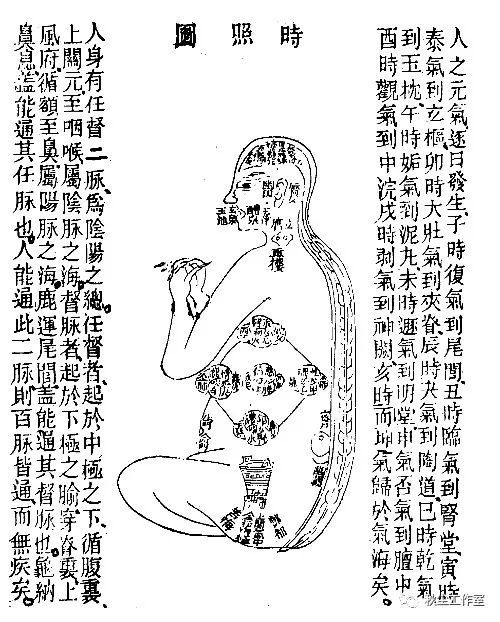 時照圖
人之元氣逐日發生子時復氣到尾閭丑時臨氣到腎堂寅時
泰氣到玄樞卯時大壯氣到夾脊辰時夬氣到陶道巳時乾氣
到玉枕午時姤氣到泥丸未時遯氣到明堂申時否氣到膻中
酉時觀氣到中浣戌時剝氣到神闕亥時而坤氣歸於氣海矣。
玉池
重樓
人身有任督二脉為陰陽之總任督者起於中極之下循腹裏
上關元至咽喉屬陰脉之海。督脉者起於下極之腧穿脊裏上
風府循額至鼻屬陽脉之海。鹿運尾閭蓋能通其督脉也。龜納
鼻息蓋能通其任脉也。人能通此二脉則百脉皆通而無疾矣。
秋生工作室